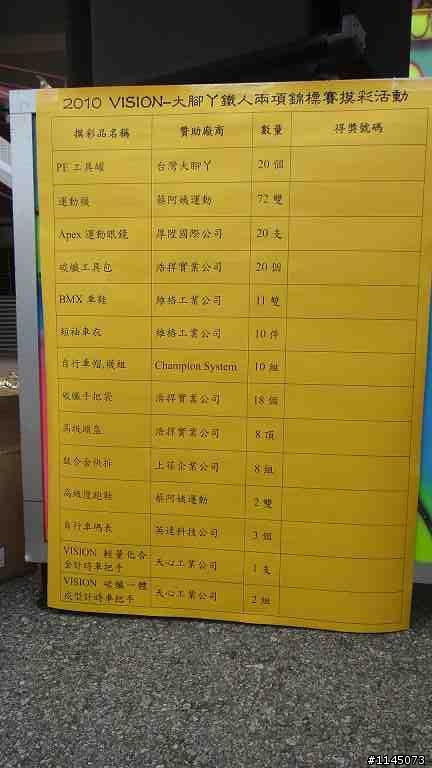 2010 VISION–大腳丫鐵人兩項錦標賽摸彩活動
摸彩品名稱 贊助廠商 數量 得獎號碼
PE 工具罐 台灣大腳丫 20 個
運動襪 蔡阿姨運動 72 雙
Apex 運動眼鏡 厚陞國際公司 20 支
碳纖工具包 浩捍實業公司 20 個
BMX 車鞋 維格工業公司 11 雙
短袖車衣 維格工業公司 10 件
自行車帽,襪組 Champion System 10 組
碳纖手把袋 浩捍實業公司 18 個
高級頭盔 浩捍實業公司 8 頂
鈦合金快拆 企業公司 8 組
高級慢跑鞋 蔡阿姨運動 2 雙
自行車碼表 英達科技公司 3 個
VISION 輕量化合
金計時車把手 天心工業公司 1 支
VISION 碳纖一體
成型計時車把手 天心工業公司 2 組
#1145073